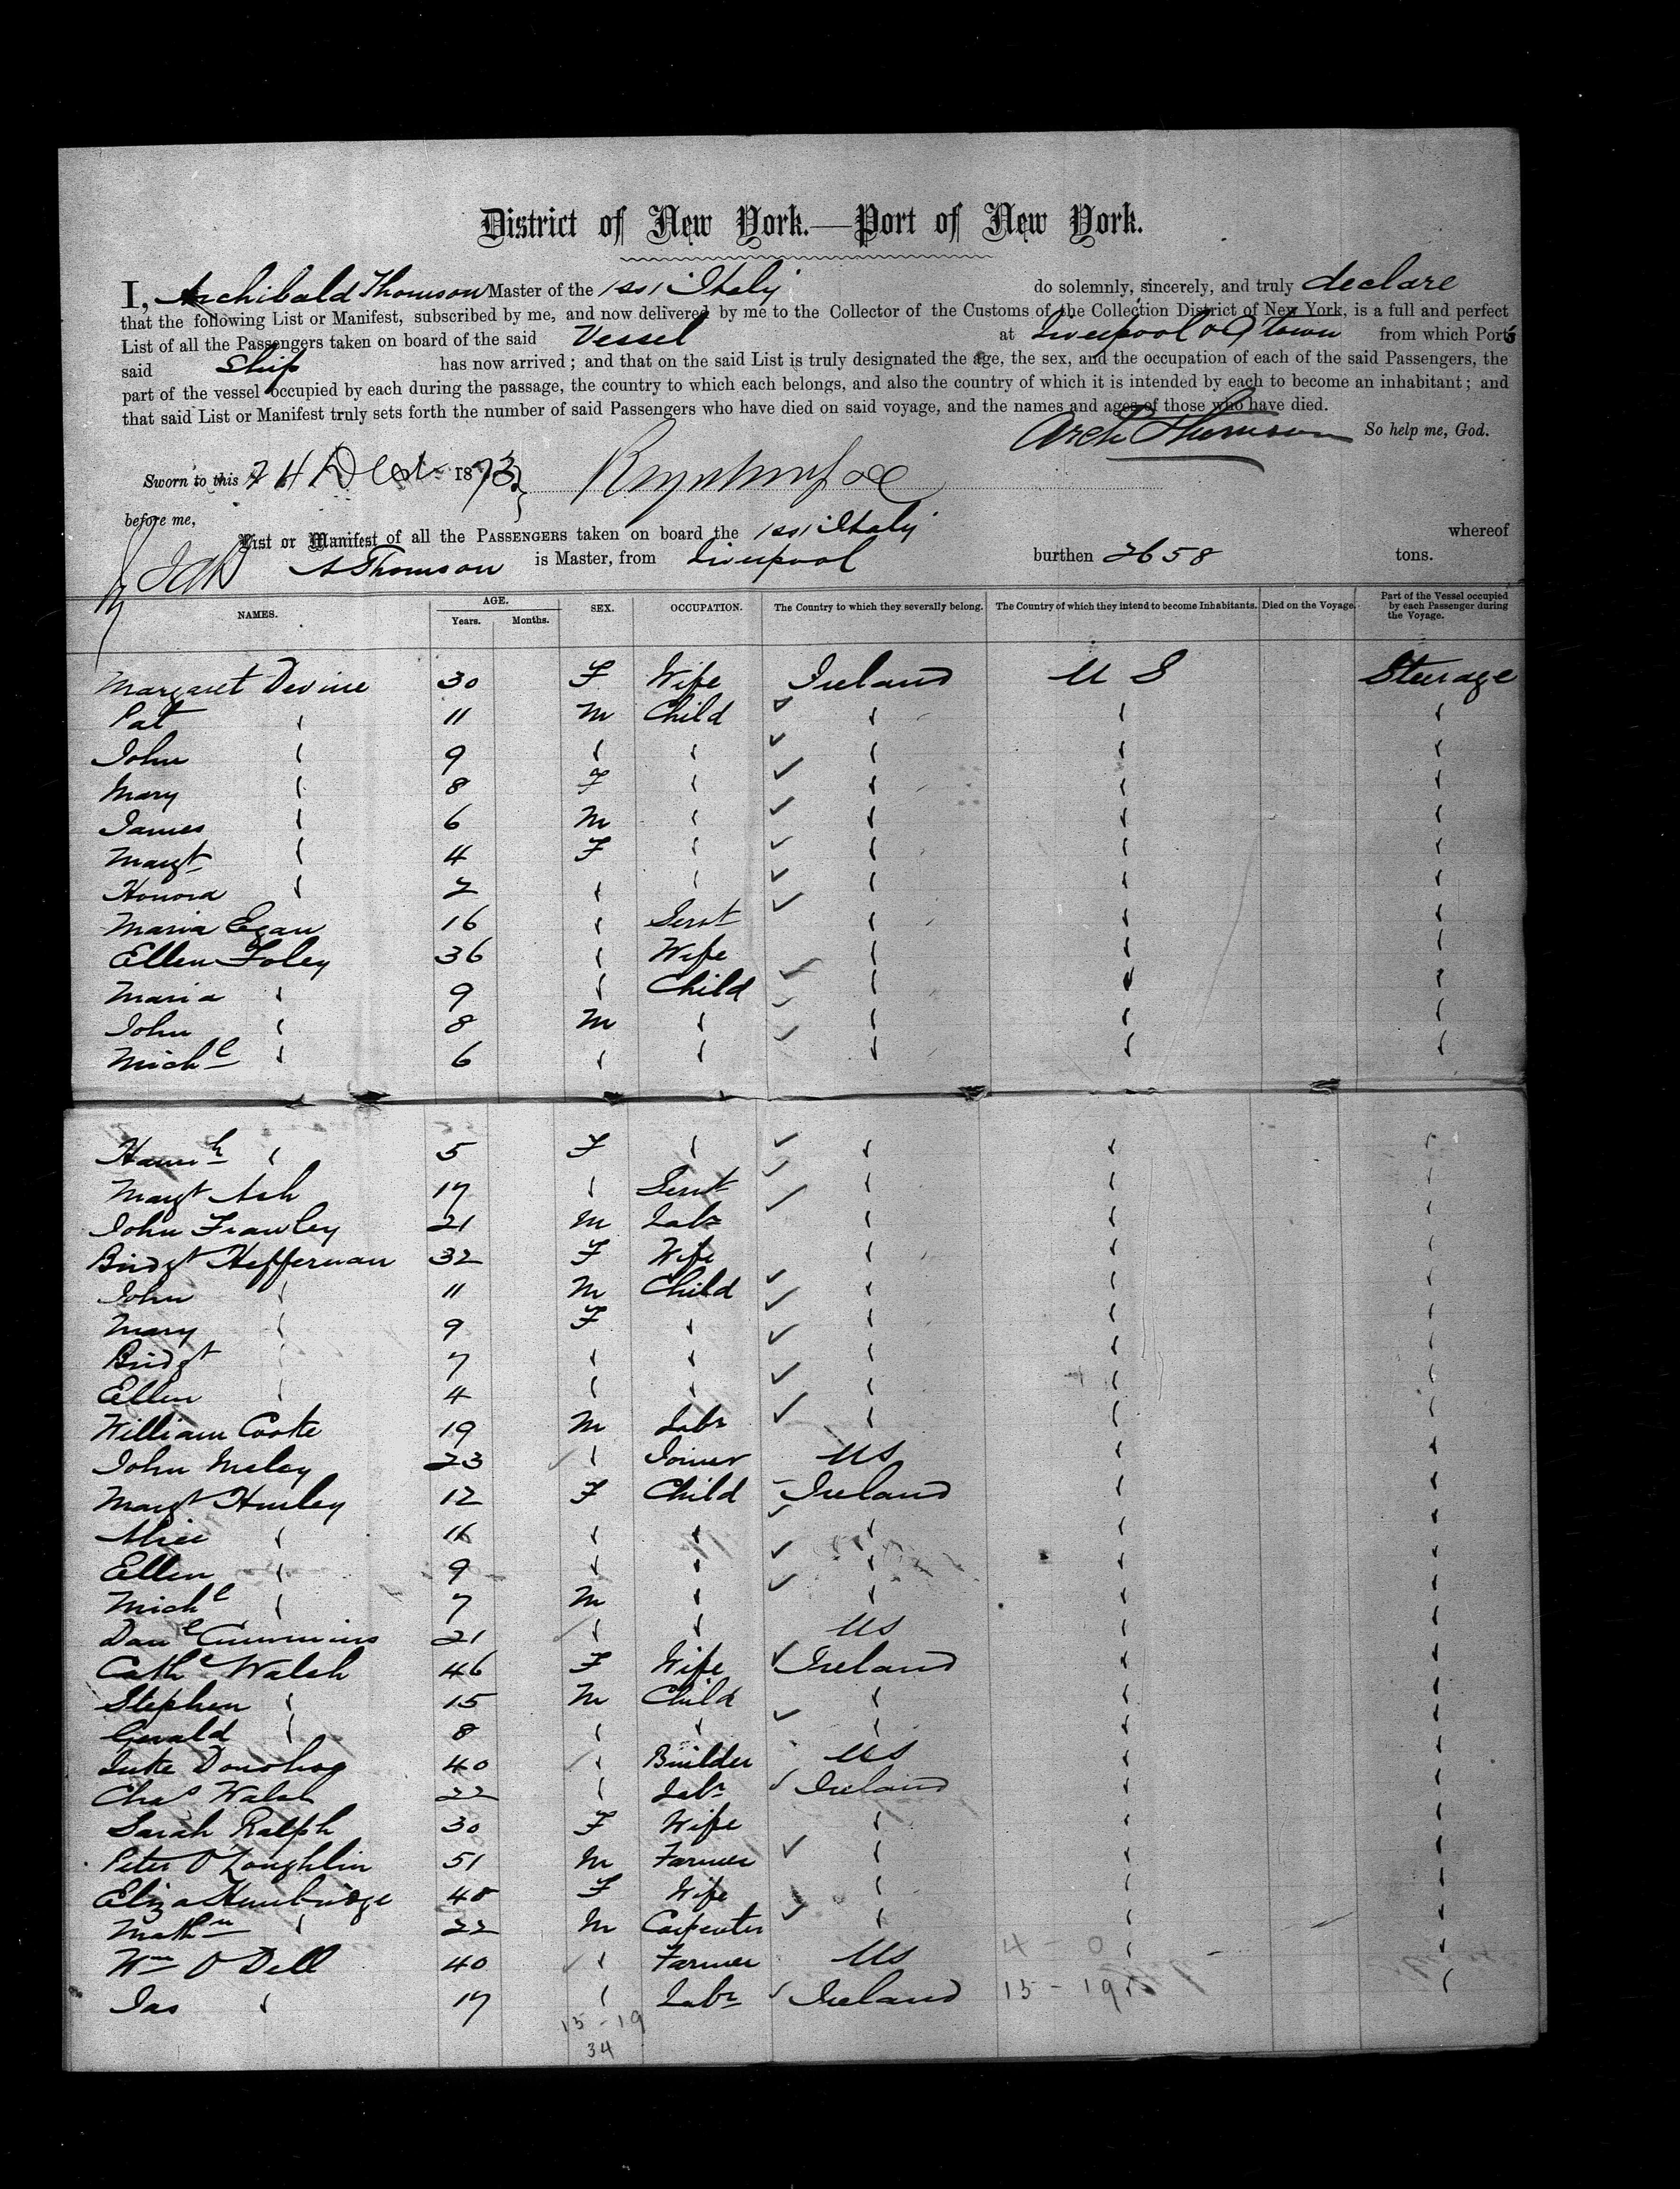 District of New York.—Port of New York.
I, Archibald Thomson Master of the "SS" Italy do solemnly, sincerely, and truly declare
that the following List or Manifest, subscribed by me, and now delivered by me to the Collector of the Customs of the Collection District of New York, is a full and perfect
List of all the Passengers taken on board of the said Vessel at Liverpool & Q town from which Ports
said Ship has now arrived; and that on the said List is truly designated the age, the sex, and the occupation of each of the said Passengers, the
part of the vessel occupied by each during the passage, the country to which each belongs, and also the country of which it is intended by each to become an inhabitant; and
that said List or Manifest truly sets forth the number of said Passengers who have died on said voyage, and the names and ages of those who have died.
Arch Thomson So help me, God.
Sworn to this 24 Dec 1873
before me,
List or Manifest of all the Passengers taken on board the "SS" Italy whereof
A Thomson is Master, from Liverpool burthen 2658 tons.
NAMES. AGE. Years. Months. SEX. OCCUPATION. The Country to which they severally belong. The Country of which they intend to become Inhabitants. Died on the Voyage. Part of the Vessel occupied by each Passenger during the Voyage.
Margaret Devine 30 F Wife Ireland U S Steerage
Pat " 11 M Child " " "
John " 9 " " " " "
Mary " 8 F " " " "
James " 6 M " " " "
Margt " 4 F " " " "
Honora " 2 " " " " "
Maria Egan 16 " Servt " " "
Ellen Foley 36 " Wife " " "
Maria " 9 " Child " " "
John " 8 M " " " "
Michl " 6 " " " " "
Hannh " 5 F " " " "
Margt Ash 17 " Servt " " "
John Frawley 21 M Labr " " "
Bridgt Heffernan 32 F Wife " " "
John " 11 M Child " " "
Mary " 9 F " " " "
Bridgt " 7 " " " " "
Ellen " 4 " " " " "
William Cooke 19 M Labr " " "
John Meley 23 " Joiner US " "
Margt Hurley 12 F Child Ireland " "
Alice " 11 " " " " "
Ellen " 9 " " " " "
Michl " 7 M " " " "
Danl Cummins 21 " " US " "
Cathe Walsh 46 F Wife Ireland " "
Stephen " 15 M Child " " "
Gerald " 8 " " " " "
Luke Donohoe 40 " Builder US " "
Chas Walsh 22 " Labr Ireland " "
Sarah Ralph 30 F Wife " " "
Peter O Loughlin 51 M Farmer " " "
Eliza 48 F Wife " " "
" 22 M Carpenter " " "
Wm O Dell 40 " Farmer US 4 - 0 " "
Jas " 17 " Labr Ireland 15 - 19 " "
15 - 19
34